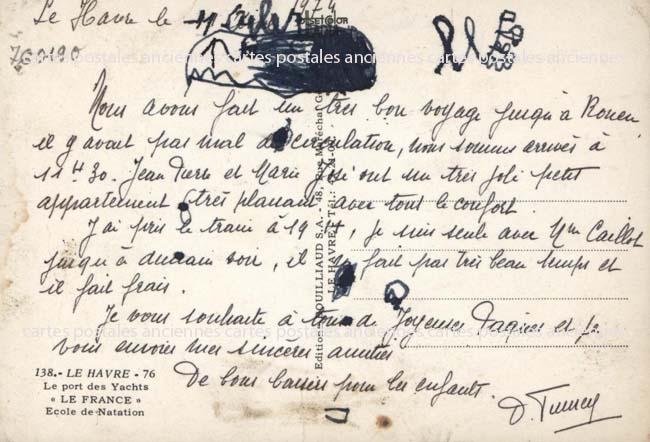 Le Havre le 11 1974
760190
Nous avons fait un très bon voyage jusqu'à Rouen
il y avait pas mal de circulation, nous sommes arrivés à
11H30. Jean Pierre et Marie José ont un très joli petit
appartement très plaisant avec tout le confort.
J'ai pris le train à 19 H, je suis seule avec Mme Caillot
jusqu'à demain soir, il ne fait pas très beau temps et
il fait frais.
Je vous souhaite à tous de Joyeuses Pâques et je
vous envoie mes sincères amitiés
De bons baisers pour les enfants.
138.- LE HAVRE - 76
Le port des Yachts
« LE FRANCE »
Ecole de Natation
OUILLIAUD S.A. - 48, Rue Maréchal
LE HAVRE
cartes postales anciennes cartes postales anciennes cartes postales anciennes